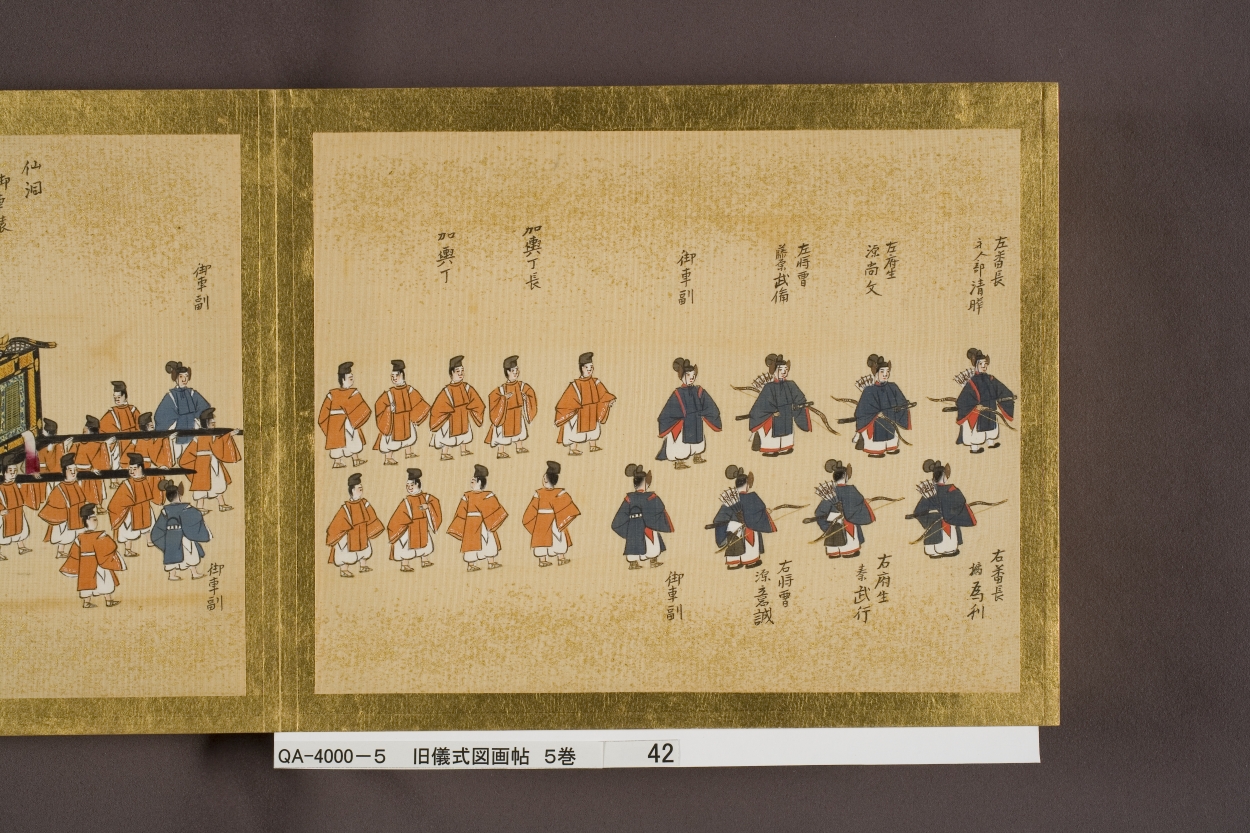 左番長
清曄
左府生
源尚文
左將曹
藤原武備
御車副
加輿丁長
加輿丁
右番長
為利
右府生
秦武行
右將曹
源意誠
御車副
御車副
仙洞
御車副
QA-4000-5 旧儀式図画帖 5巻 42